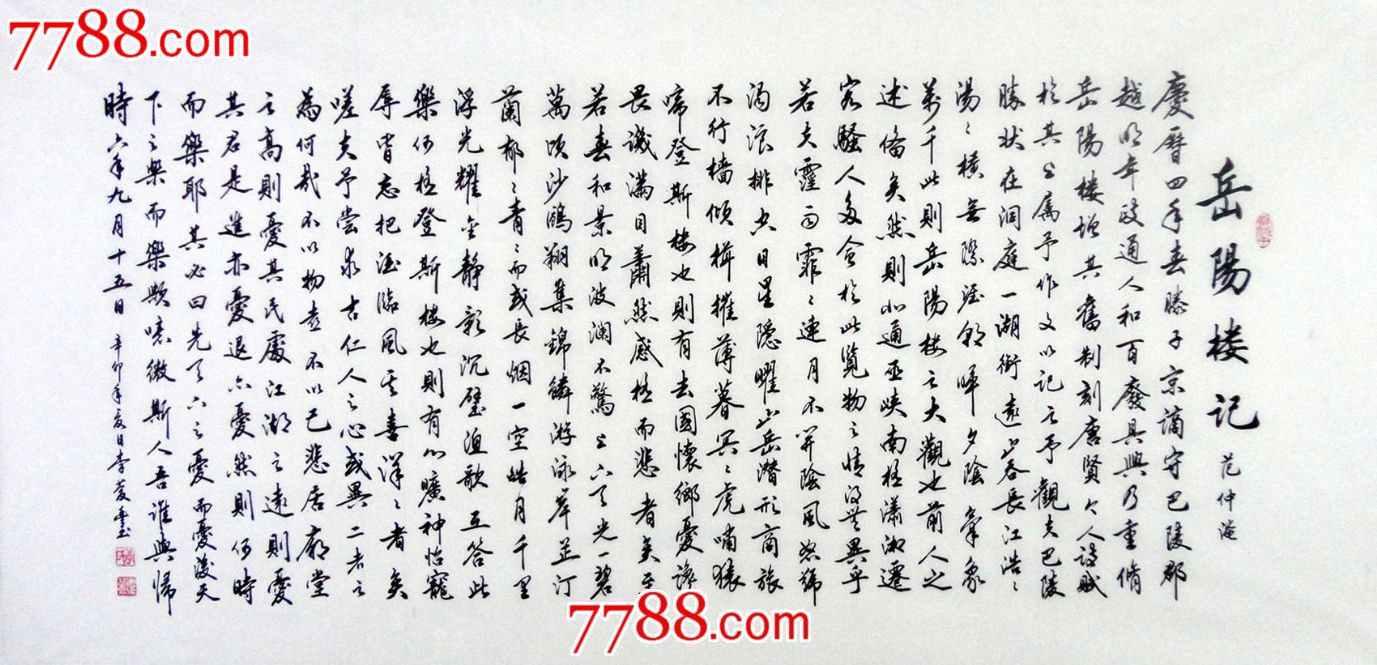 7788.com
岳陽楼记 范仲淹
慶曆四年春滕子京謫守巴陵郡
越明年政通人和百廢具興乃重脩
岳陽楼增其舊制刻唐賢今人詩賦
於其上属予作文以记之予觀夫巴陵
勝状在洞庭一湖銜遠山吞長江浩〻
湯〻横無際涯朝暉夕陰氣象
萬千此則岳陽楼之大觀也前人之
述備矣然則北通巫峽南極瀟湘遷
客騷人多會於此覧物之情得無異乎
若夫霪雨霏〻連月不開陰風怒號
濁浪排空日星隱曜山岳潛形商旅
不行檣傾楫摧薄暮冥〻虎嘯猿
啼登斯楼也則有去國懷鄉憂讒
畏譏滿目蕭然感極而悲者矣至
若春和景明波瀾不驚上下天光一碧
萬頃沙鷗翔集錦鱗游泳岸芷汀
蘭郁〻青〻而或長烟一空皓月千里
浮光耀金静影沉璧漁歌互答此
樂何極登斯楼也則有心曠神怡寵
辱皆忘把酒臨風其喜洋〻者矣
嗟夫予嘗求古仁人之心或異二者之
為何哉不以物喜不以己悲居廟堂
之高則憂其民處江湖之遠則憂
其君是進亦憂退亦憂然則何時
而樂耶其必曰先天下之憂而憂後天
下之樂而樂歟噫微斯人吾誰與歸
時六年九月十五日 辛卯年夏日李
7788.com